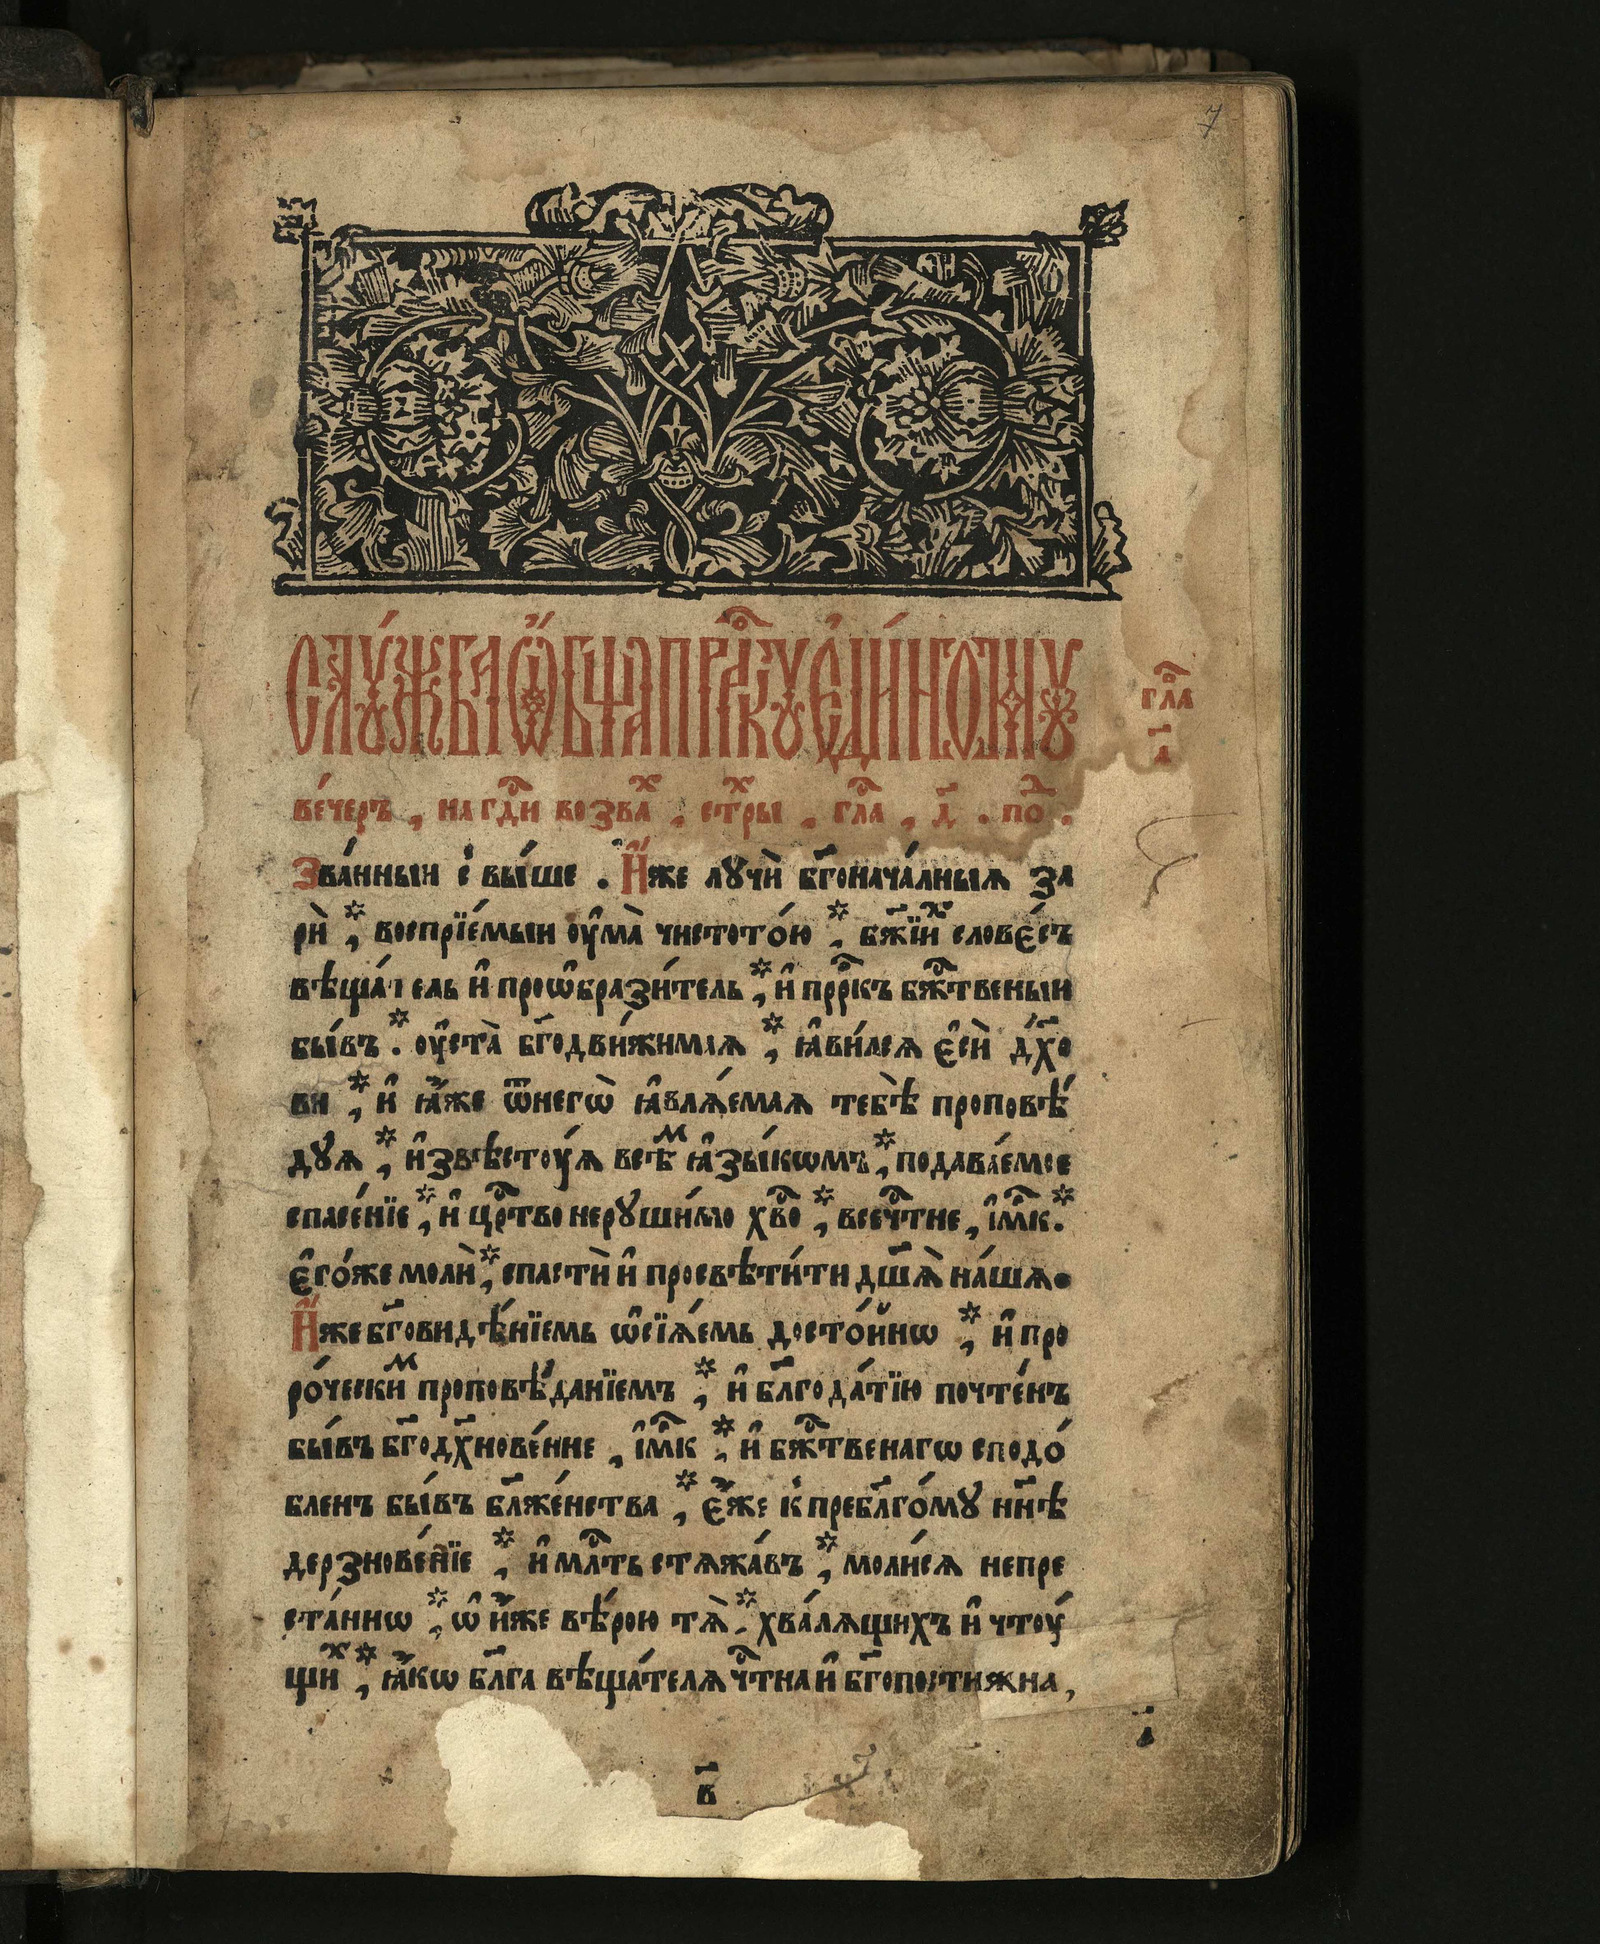 7
СЛꙋ́ЖБА Ѡ҆́БЩАѦ ПРⷪ҇РКꙋ Е҆ДИ́НОМꙋ
глⷡ҇а
а҃
ве́черъ , на гдⷭ҇и возваⷯ , стⷯры , глⷡ҇а , д҃ . поⷣ .
Зва́нныи с̾ вы́ше . И҆́же лꙋчѝ бг҃онача́лныѧ за
рѝ * , воспрїе́мыи оу҆ма̀ чистото́ю * , бж҃їиⷯ слове́съ
вѣща́тель и҆ проѡ҆брази́тель * , и҆ прⷪ҇ркъ бжⷭ҇твеныи
бы́въ * . оу҆ста̀ бг҃одви́жимаѧ * , ꙗ҆ви́лсѧ є҆сѝ дх҃о
ви * , и҆ ꙗ҆́же ѿнегѡ̀ ꙗ҆влѧ́емаѧ тебѣ̀ проповѣ́
дꙋѧ * , и҆звѣстоу́ѧ всѣⷨ ꙗ҆зы́кѡмъ * , подава́емое
спасе́нїе * , и҆ црⷭ҇тво нерꙋши́мо хвⷭ҇о * , всечⷭ҇тне , і҆мⷬ҇к . *
є҆го́же молѝ * , спастѝ и҆ просвѣти́ти дш҃ѧ̀ на́шѧ .
И҆́же бг҃овидѣ́нїемь ѡ҆сїѧ́емь досто́йнѡ * , и҆ про
ро́ческиⷨ проповѣ́данїемъ * , и҆ блг҃ода́тїю почте́нъ
бы́въ бг҃одх҃нове́нне , і҆мⷬ҇к * , и҆ бжⷭ҇твенагѡ сподо́
бленъ бы́въ бл҃же́нства * , є҆́же к̾ пребл҃го́мꙋ нн҃ѣ
дерзнове́нїе * , и҆ млⷭ҇ть стѧжа́въ * , моли́сѧ непре
ста́ннѡ * , ѡ҆ и҆́же вѣ́рою тѧ̀ * , хва́лѧщихъ и҆ чтоу́
щиⷯ * , ꙗ҆́кѡ бл҃га вѣща́телѧ чⷭ҇тна и҆ бг҃опостижна ,
в҃